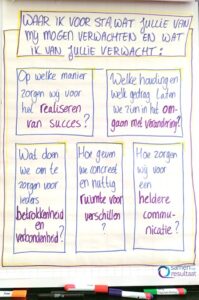 WAAR IK VOOR STA, WAT JULLIE VAN
MIJ MOGEN VERWACHTEN EN WAT
IK VAN JULLIE VERWACHT:
Op welke manier
zorgen wij voor
het realiseren
van succes?
Welke houding en
welk gedrag laten
we zien in het om-
gaan met verandering?
Wat doen
we om te
zorgen voor
ieders
betrokkenheid
en
verbondenheid?
Hoe geven
we concreet
en nuttig
ruimte voor
verschillen
?
Hoe zorgen
wij voor
een
heldere
commu-
nicatie?
samen
resultaat